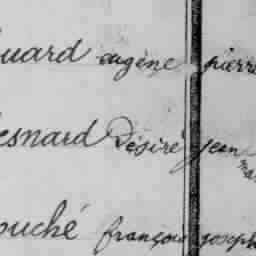 ouard eugène pierre
esnard Désiré jean
mar
ouché françois joseph